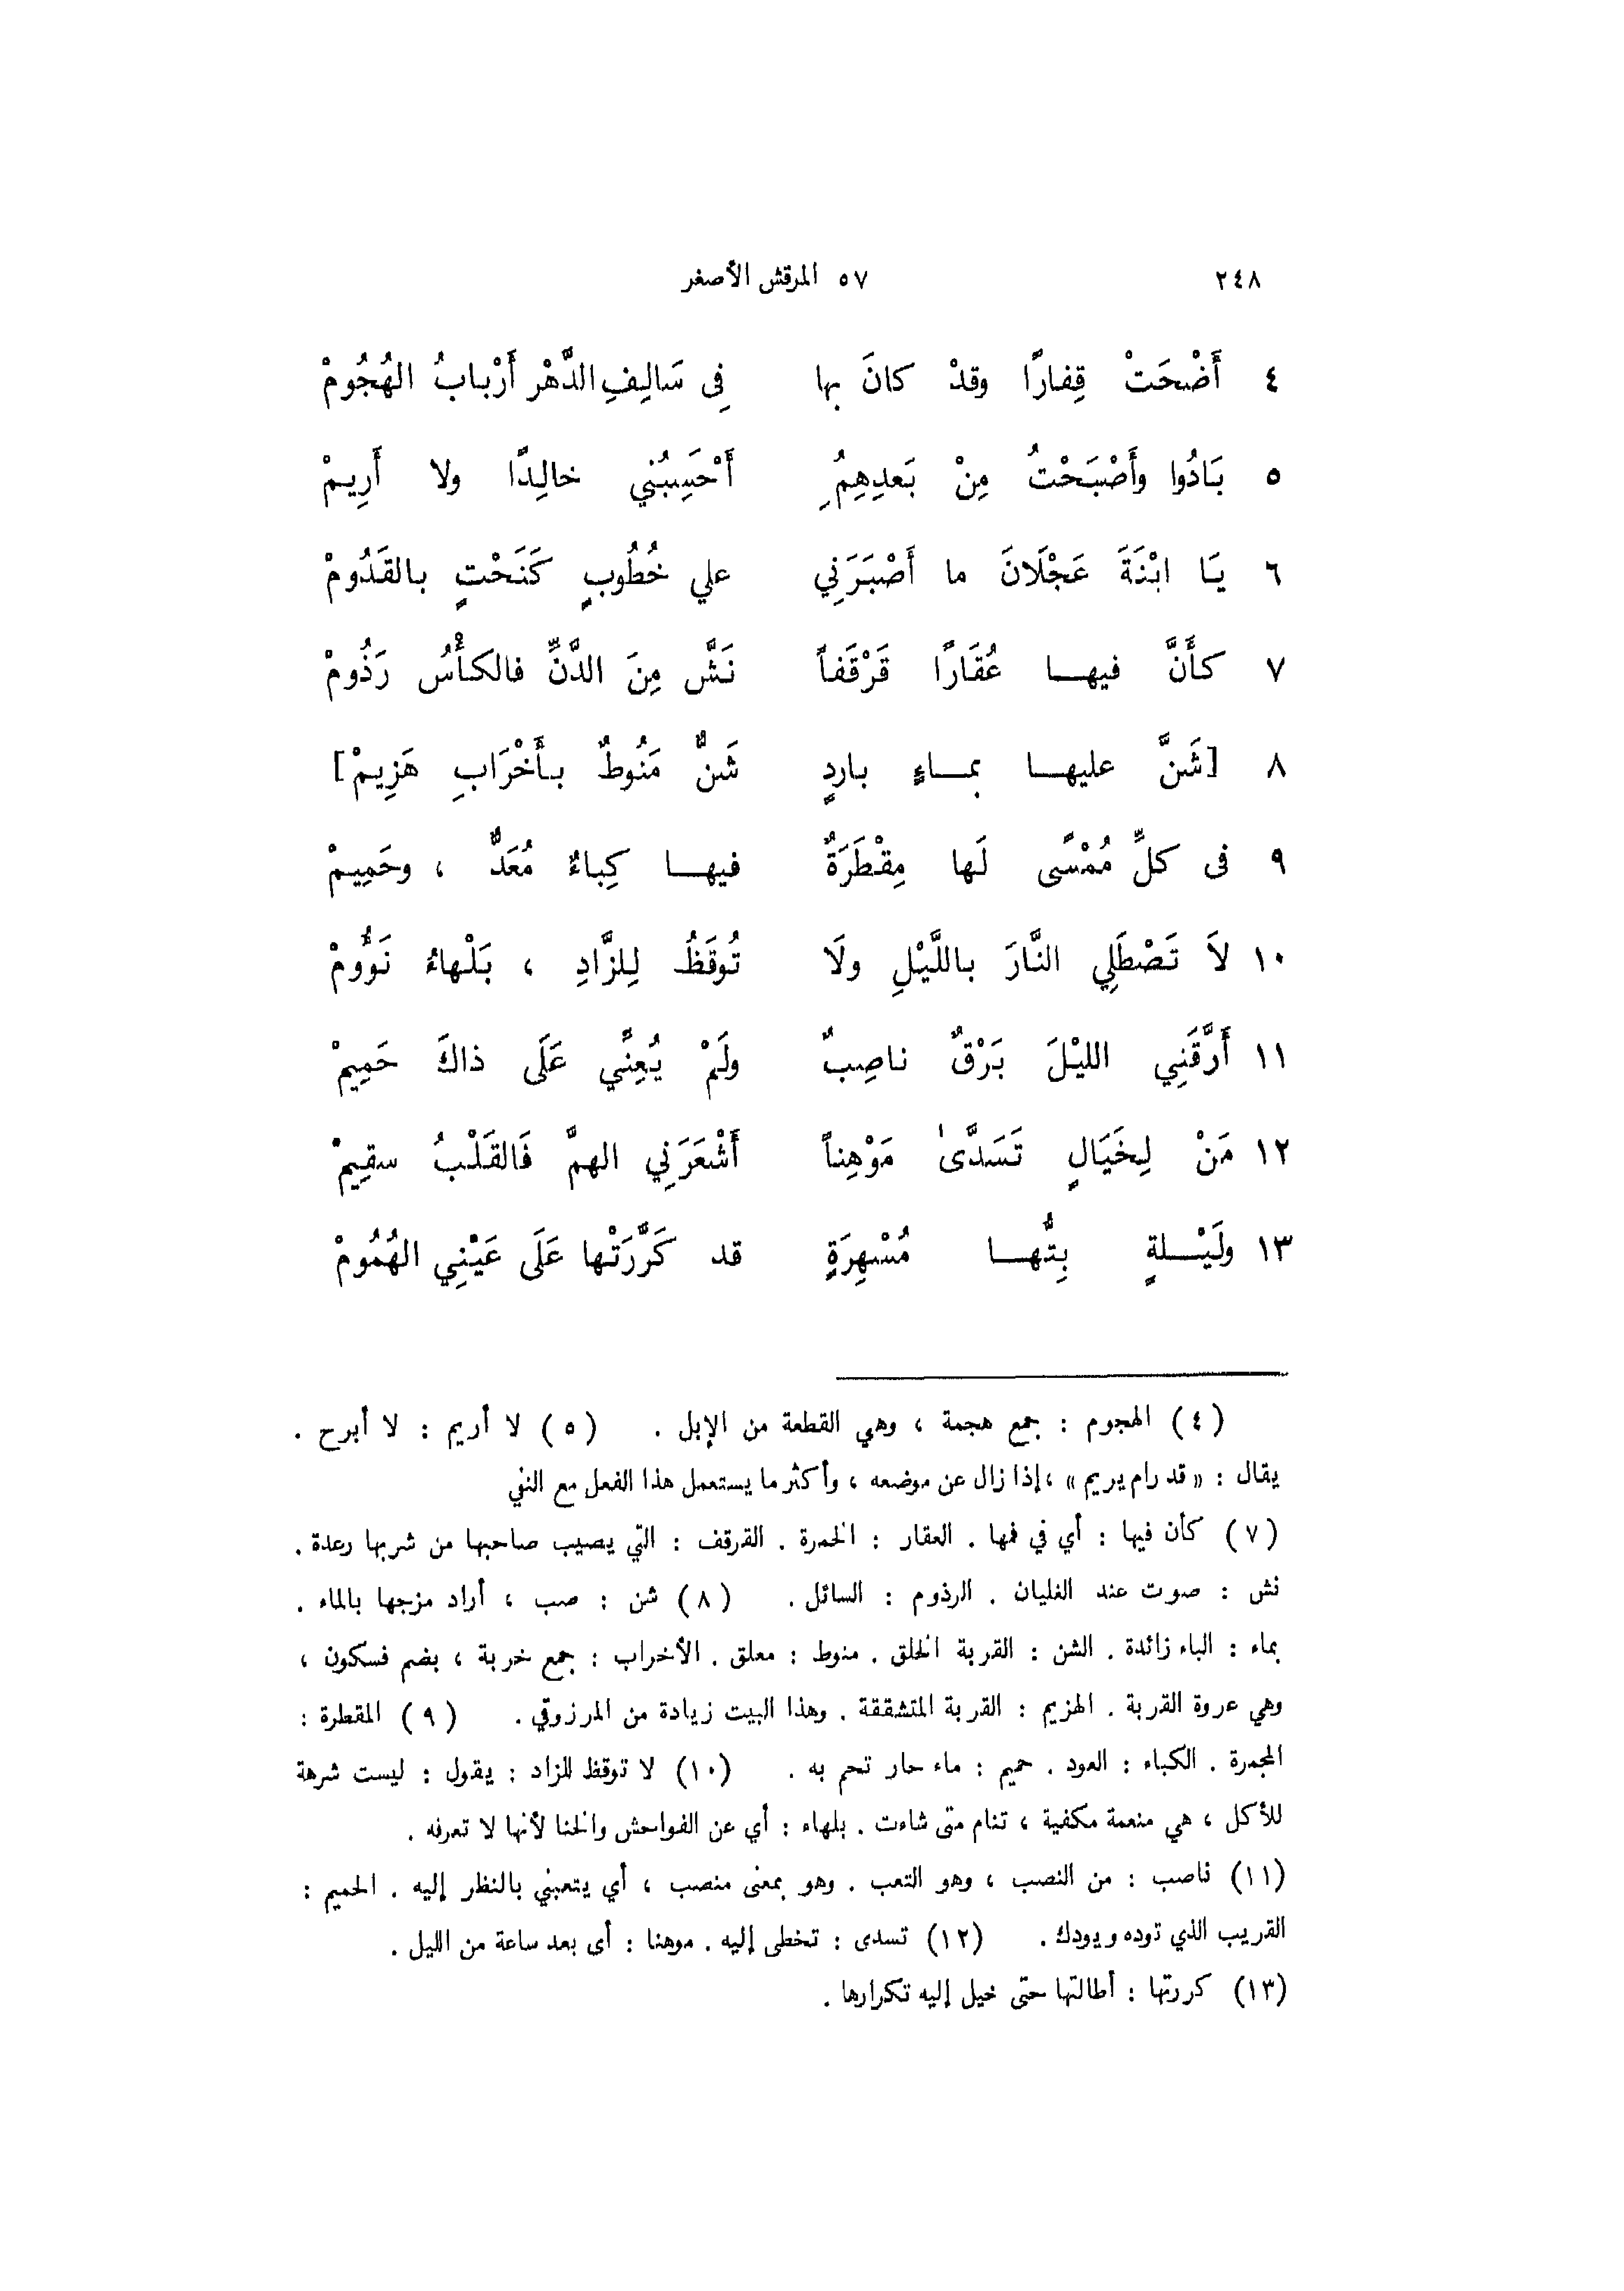 ٢٤٨ ٥٧ المرقش الأصغر
٤ أَضْحَتْ قِفاراً وقدْ كانَ بها فِى سَالِفِ الدَّهْرِ أَرْبابُ الهُجُومْ
٥ بَادُوا وأَصْبَحْتُ مِنْ بَعدِهِمُ أَحْسِبُنِي خالِدًا ولا أَرِيمْ
٦ يَا ابْنَةَ عَجْلَانَ ما أَصْبَرَنِي علي خُطُوبٍ كَنَحْتٍ بالقَدُومْ
٧ كأَنَّ فيها عُقَارًا قَرْقَفاً نَشَّ مِنَ الدَّنِّ فالكأْسُ رَذُومْ
٨ [شَنَّ عليها بماءٍ باردٍ شَنٌّ مَنُوطٌ بأَخْرَابِ هَزِيمْ]
٩ فى كلِّ مُمْسًى لَها مِقْطَرَةٌ فيها كِباءٌ مُعَدٌّ ، وحَمِيمْ
١٠ لاَ تَصْطَلِي النَّارَ باللَّيْلِ ولَا تُوقَظُ لِلزَّادِ ، بَلْهاءُ نَوُّومْ
١١ أَرَّقَنِي الليْلَ بَرْقٌ ناصِبٌ ولَمْ يُعِنِّي عَلَى ذاكَ حَمِيمْ
١٢ مَنْ لِخَيَالٍ تَسَدَّىٰ مَوْهِناً أَشْعَرَنِي الهمَّ فَالقَلْبُ سقِيمْ
١٣ ولَيْلةٍ بِتُّها مُسْهِرَةٍ قد كَرَّرَتْها عَلَى عَيْنِي الهُمُومْ
(٤) الهجوم : جمع هجمة ، وهي القطعة من الإبل . (٥) لا أريم : لا أبرح .
يقال : « قد رام يريم » ، إذا زال عن موضعه ، وأكثر ما يستعمل هذا الفعل مع النفي
(٧) كأن فيها : أي في فمها . العقار : الخمرة . القرقف : التي يصيب صاحبها من شربها رعدة .
نش : صوت عند الغليان . الرذوم : السائل . (٨) شن : صب ، أراد مزجها بالماء .
بماء : الباء زائدة . الشن : القربة الخلق . منوط : معلق . الأخراب : جمع خربة ، بضم فسكون ،
وهي عروة القربة . الهزيم : القربة المتشققة . وهذا البيت زيادة من المرزوقي . (٩) المقطرة :
المجمرة . الكباء : العود . حميم : ماء حار تحم به . (١٠) لا توقظ للزاد : يقول : ليست شرهة
للأكل ، هي منعمة مكفية ، تنام متى شاءت . بلهاء : أي عن الفواحش والخنا لأنها لا تعرفه .
(١١) ناصب : من النصب ، وهو التعب . وهو بمعنى منصب ، أي يتعبني بالنظر إليه . الحميم :
القريب الذي توده ويودك . (١٢) تسدى : تخطى إليه . موهنا : أى بعد ساعة من الليل .
(١٣) كررتها : أطالتها حتى خيل إليه تكرارها .